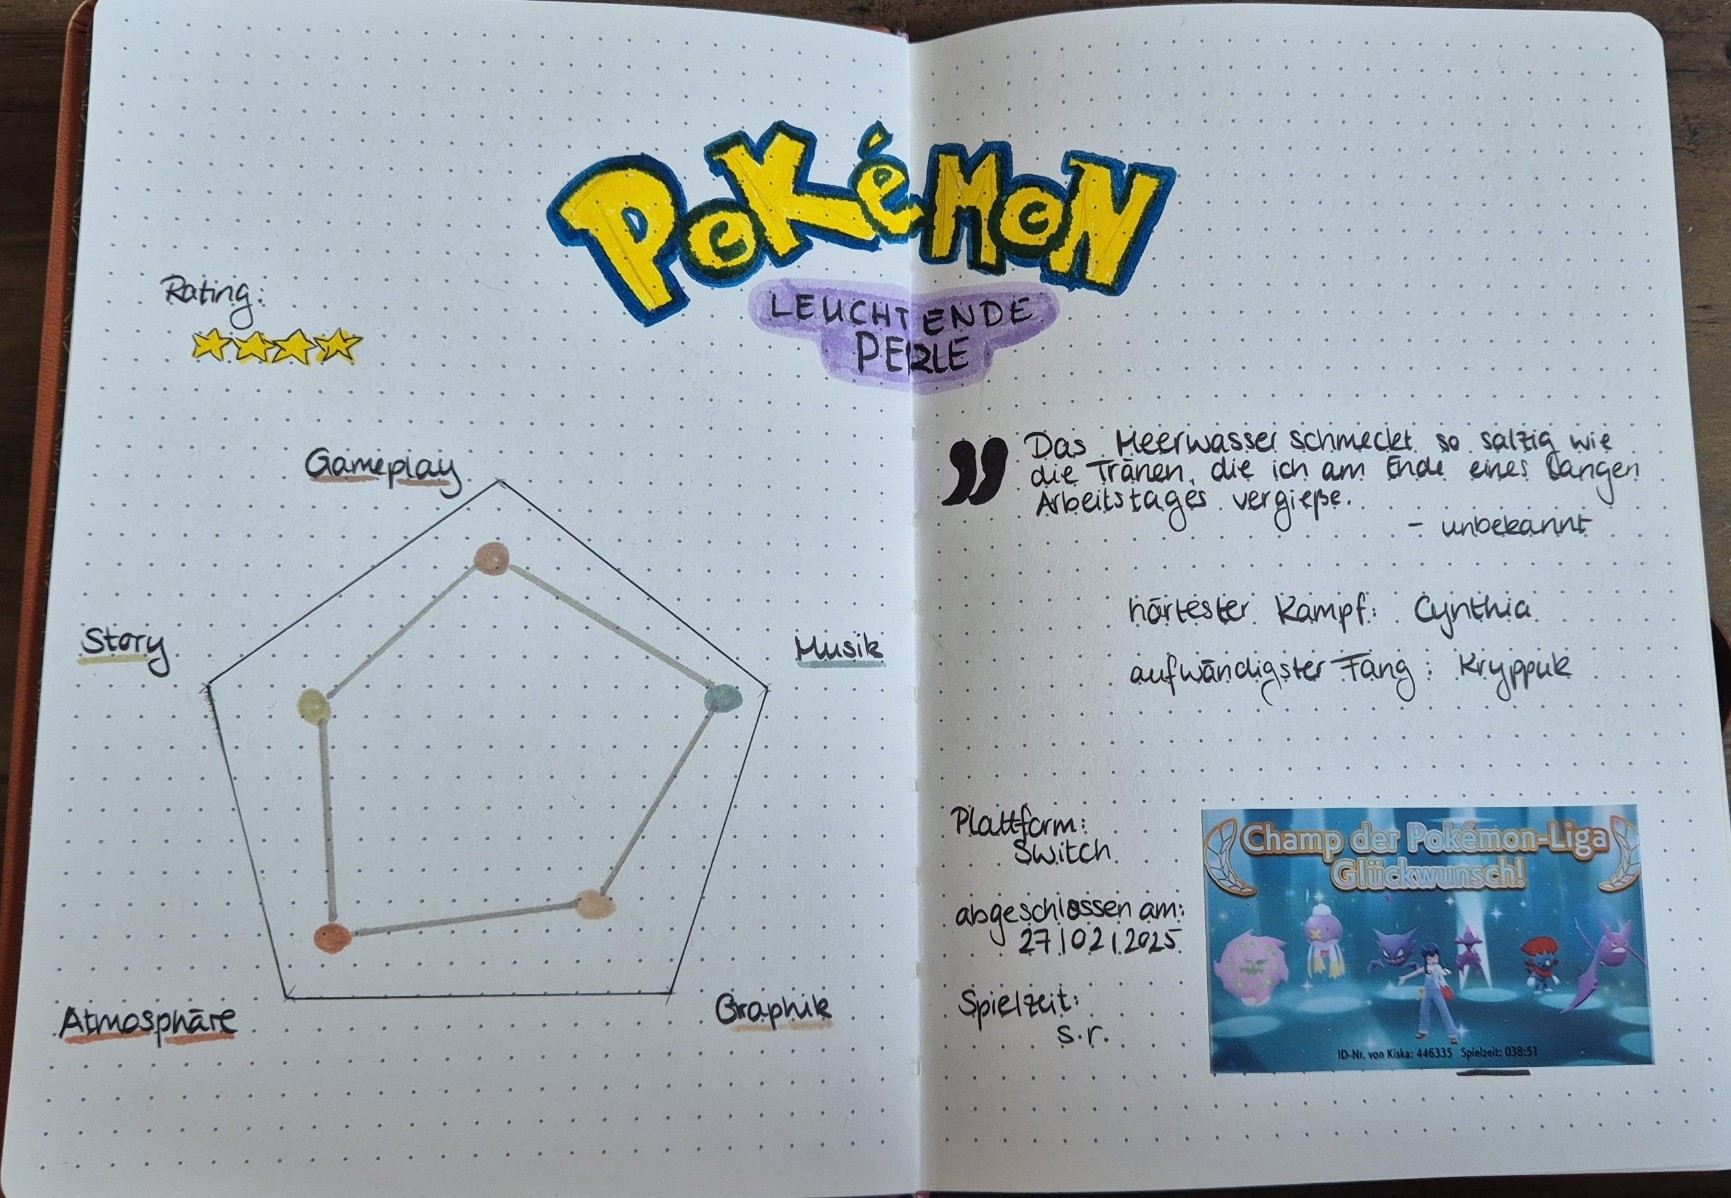 POKéMON
LEUCHTENDE
PERLE
Rating:
Gameplay
Story
Musik
Atmosphäre
Graphik
Das Meerwasser schmeckt so salzig wie
die Tränen, die ich am Ende eines langen
Arbeitstages vergieße.
- unbekannt
härtester Kampf: Cynthia
aufwändigster Fang: Kryppuk
Plattform:
Switch
abgeschlossen am:
27|02|2025
Spielzeit:
s.r.
Champ der Pokémon-Liga
Glückwunsch!
ID-Nr. von Kiska: 446335 Spielzeit: 038:51